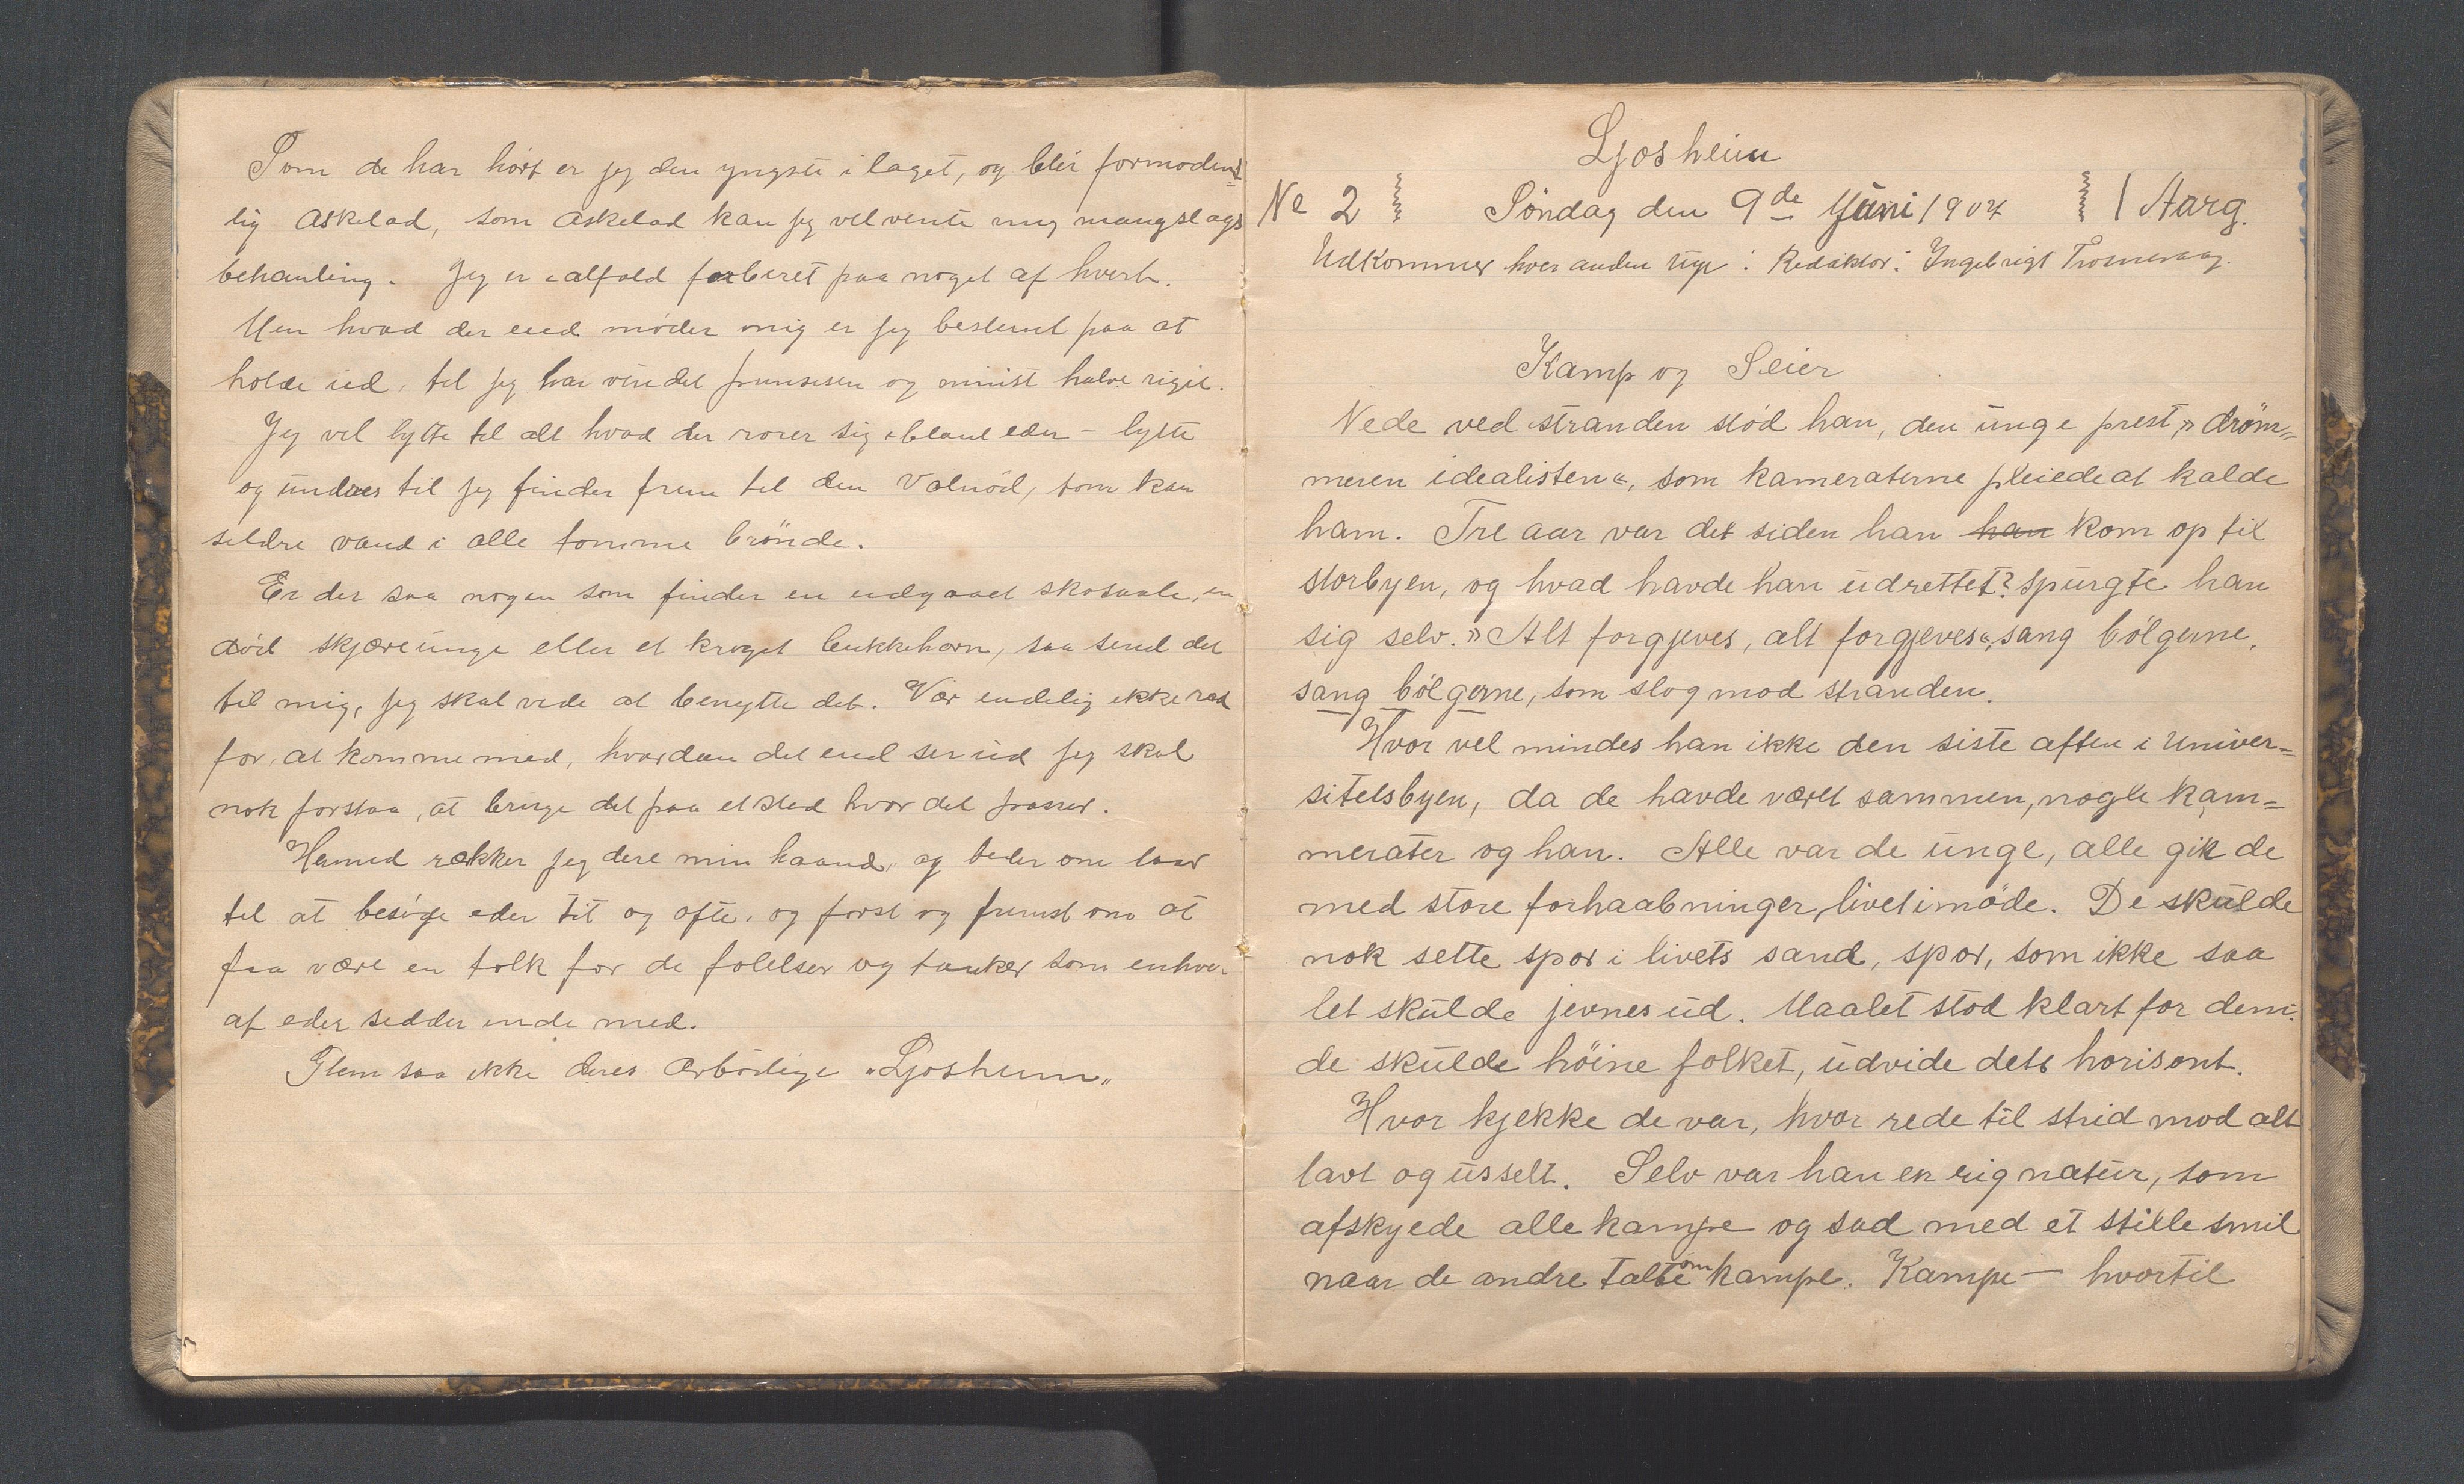 Som de har hört er jeg den yngste i laget, og blir formodent=
lig askelad, som askelad kan jeg vel vente mig mangslags
behanling. Jeg er ialfald forberet paa noget af hvert.
Men hvad der end möder mig er jeg bestemt paa at
holde ud, til jeg har vundet prinsesen og minst halve riget.
Jeg vil lytte til alt hvad der rorer sig iblant eder – lytte
og undres til jeg finder frem til den Valnöd, som kan
sildre vand i alle tomme brönde.
Er der saa nogen som finder en udgaaet skosaale, en
död skjæreunge eller et kroget bukkehorn, saa send det
til mig, jeg skal vide at benytte det. Vær endelig ikke ræd
for, at komme med, hvordan det end ser ud jeg skal
nok forstaa, at bruge det paa et sted hvor det passer.
Hermed rækker jeg dere min haand, og beder om lov
til at besöge eder tit og ofte, og först og fremst om at
faa være en tolk for de folelser og tanker som enhver
af eder sidder inde med.
Glem saa ikke deres ærbödige "Ljosheim"
Ljosheim
No 2 Söndag den 9de Juni 1904 1 Aarg.
Udkommer hver anden uge : Redaktör: Ingebrigt
Kamp og Seier
Nede ved stranden stod han, den unge prest, »dröm=
meren idealisten«, som kameraterne pleiede at kalde
ham. Tre aar var det siden han han kom op til
storbyen, og hvad havde han udrettet? spurgte han
sig selv. »Alt forgjeves, alt forgjeves«, sang bölgerne,
sang bölgerne, som slog mod stranden.
Hvor vel mindes han ikke den siste aften i Univer=
sitetsbyen, da de havde været sammen, nogle kam=
merater og han. Alle var de unge, alle gik de
med store forhaabninger, livet imöde. De skulde
nok sette spor i livets sand, spor, som ikke saa
let skulde jevnes ud. Maalet stod klart for dem:
de skulde höine folket, udvide dets horisont.
Hvor kjekke de var, hvor rede til strid mod alt
lavt og usselt. Selv var han en rig natur, som
afskyede alle kampe og sad med et stille smil
naar de andre talte om kampe. Kampe — hvortil